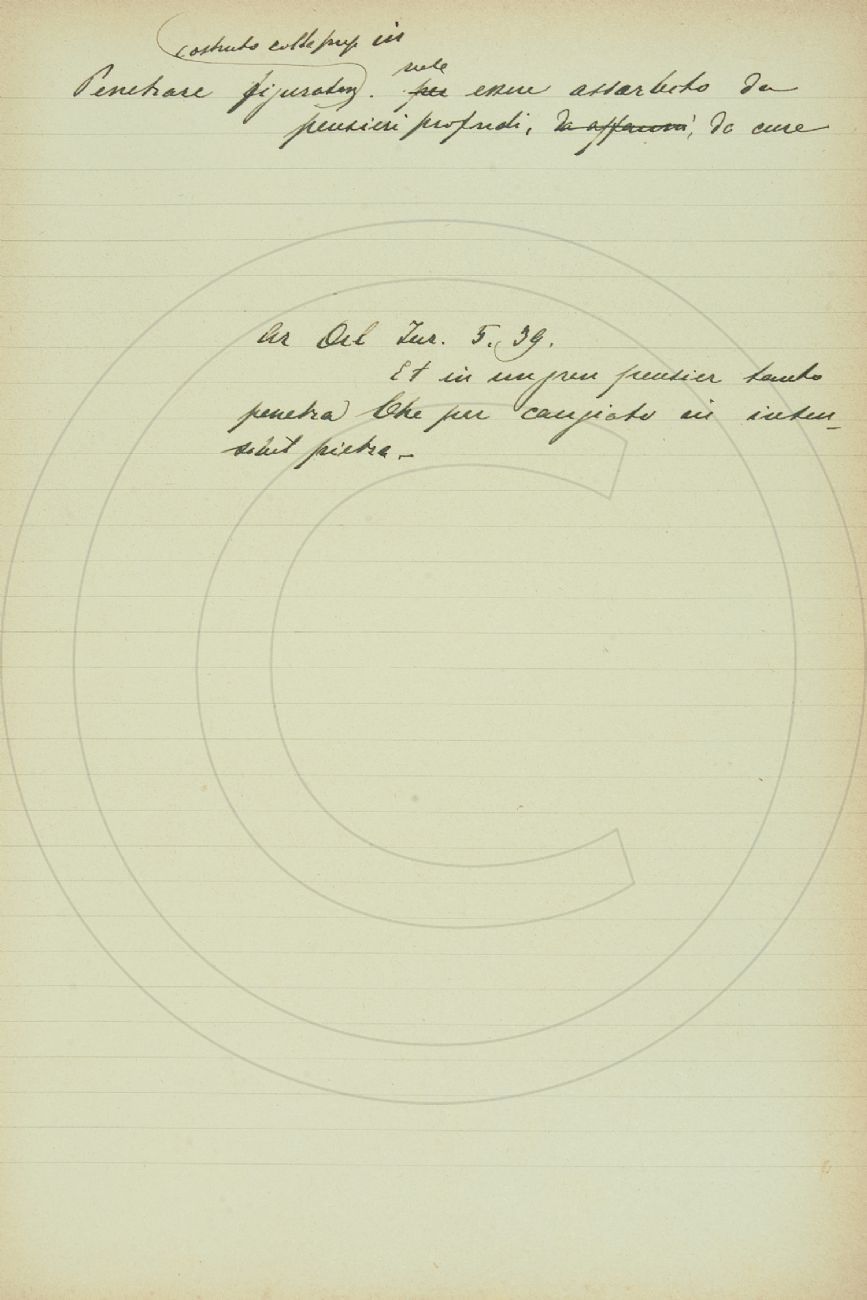 costruito colla prep. in
Penetrare figuratam. vale per essere assorbito da
pensieri profondi, da affanni, da cure
Ar Orl Fur. 5. 39.
Et in un gran pensier tanto
penetra Che par cangiato in insen-
sibil pietra.